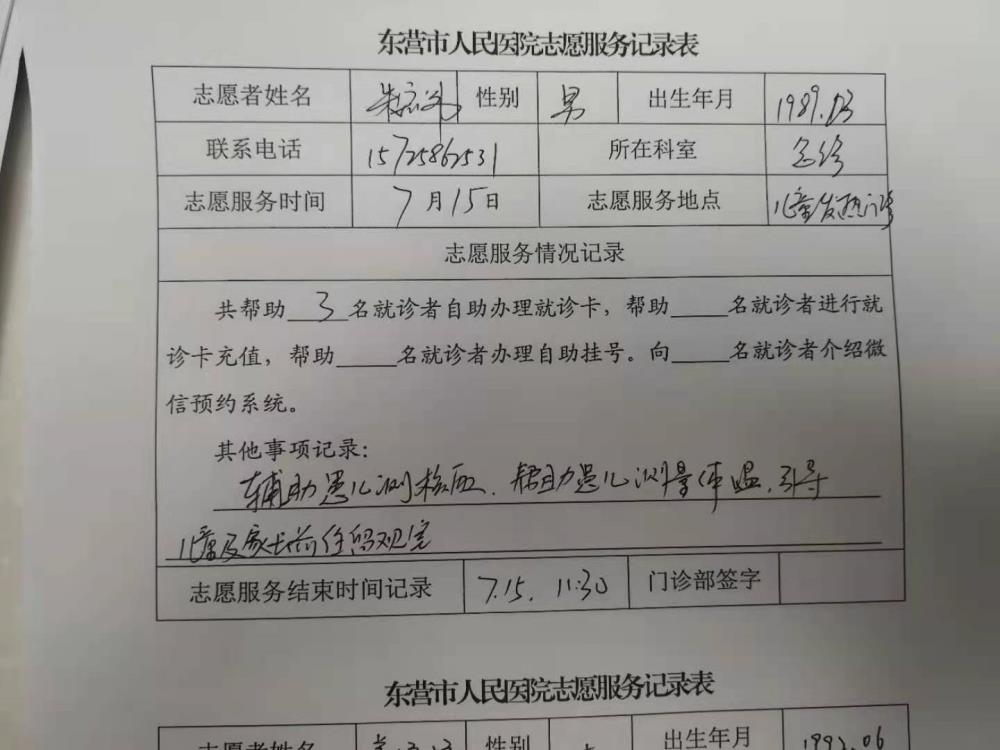 东营市人民医院志愿服务记录表
志愿者姓名 性别 男 出生年月 1989.03
联系电话 15725862531 所在科室 急诊
志愿服务时间 7月15日 志愿服务地点 儿童发热门诊
志愿服务情况记录
共帮助 3 名就诊者自助办理就诊卡，帮助____名就诊者进行就
诊卡充值，帮助____名就诊者办理自助挂号。向____名就诊者介绍微
信预约系统。
其他事项记录：
辅助患儿测核血、帮助患儿测量体温、引导
儿童及家长前往留观室
志愿服务结束时间记录 7.15. 11:30 门诊部签字
东营市人民医院志愿服务记录表
志愿者姓名 性别 出生年月 1992.06